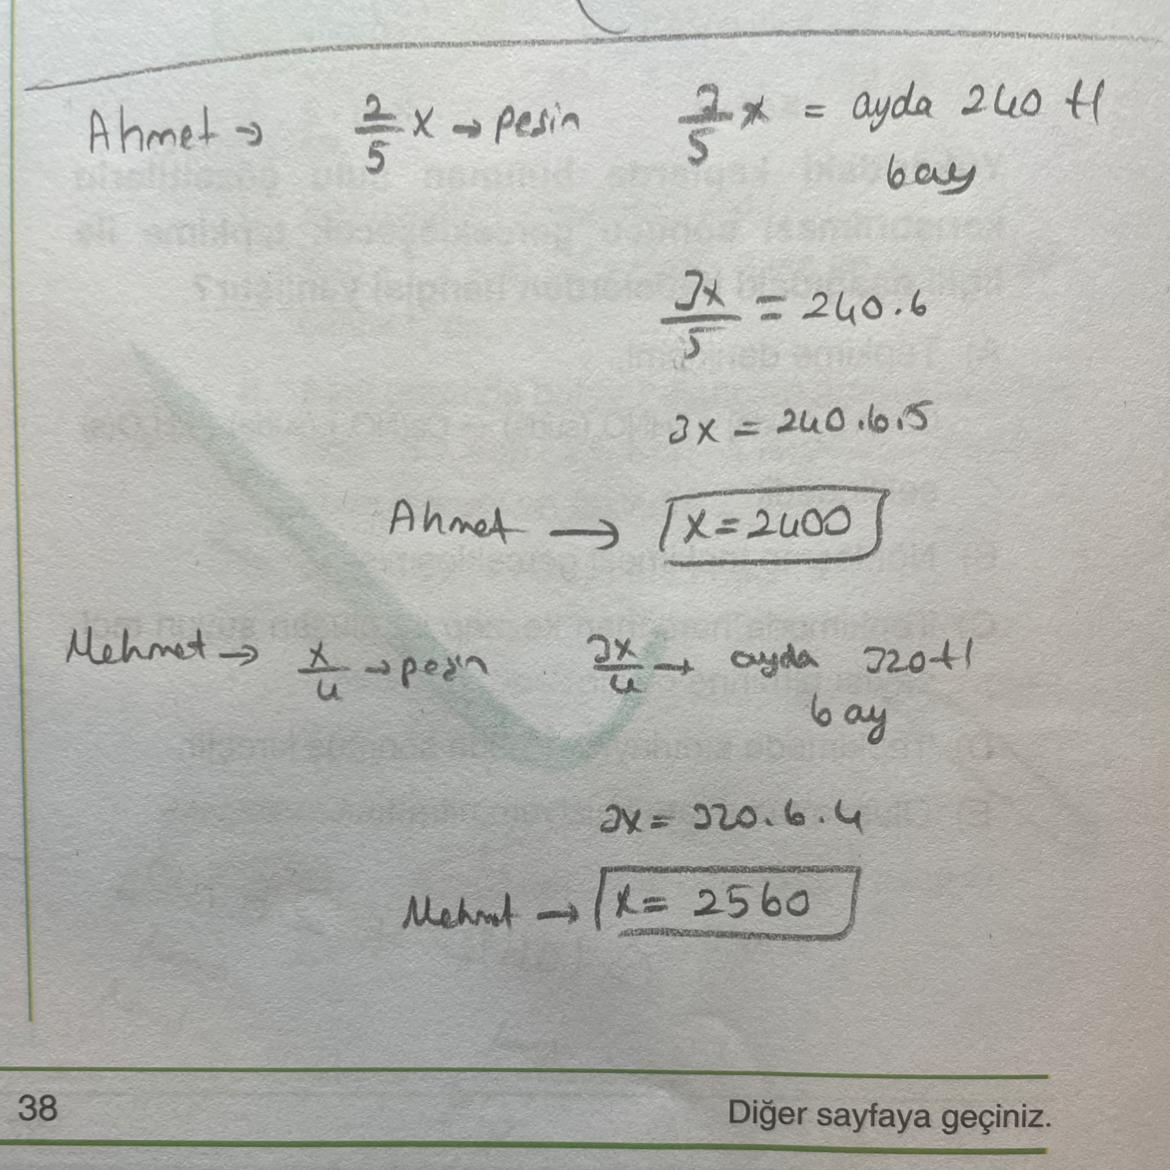 Ahmet → 2/5 x → peşin 3/5 x = ayda 240 tl
6 ay
3x/5 = 240.6
3x = 240.6.5
Ahmet → x = 2400
Mehmet → x/4 → peşin 3x/4 → ayda 320 tl
6 ay
3x = 320.6.4
Mehmet → x = 2560
38 Diğer sayfaya geçiniz.